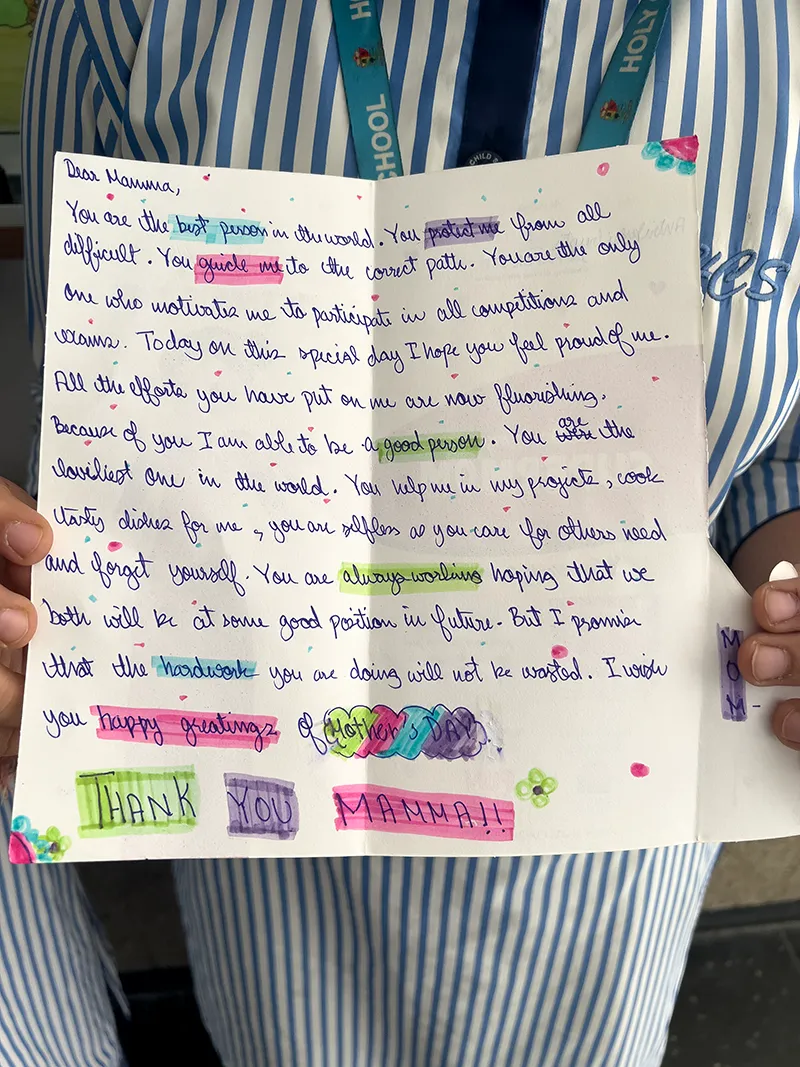 H
SCHOOL
HOLY
CHILD
Dear Mamma,
You are the best person in the world. You protect me from all
difficult. You guide me to the correct path. You are the only
one who motivates me to participate in all competitions and
exams. Today on this special day I hope you feel proud of me.
All the efforts you have put on me are now fluorishing.
Because of you I am able to be a good person. You were are the
loveliest one in the world. You help me in my projects, cook
tasty dishes for me, you are selfless as you care for others need
and forget yourself. You are always working hoping that we
both will be at some good position in future. But I promise
that the hardwork you are doing will not be wasted. I wish
you happy greatings of Mother's DAY.
THANK YOU MAMMA!!
MOM-